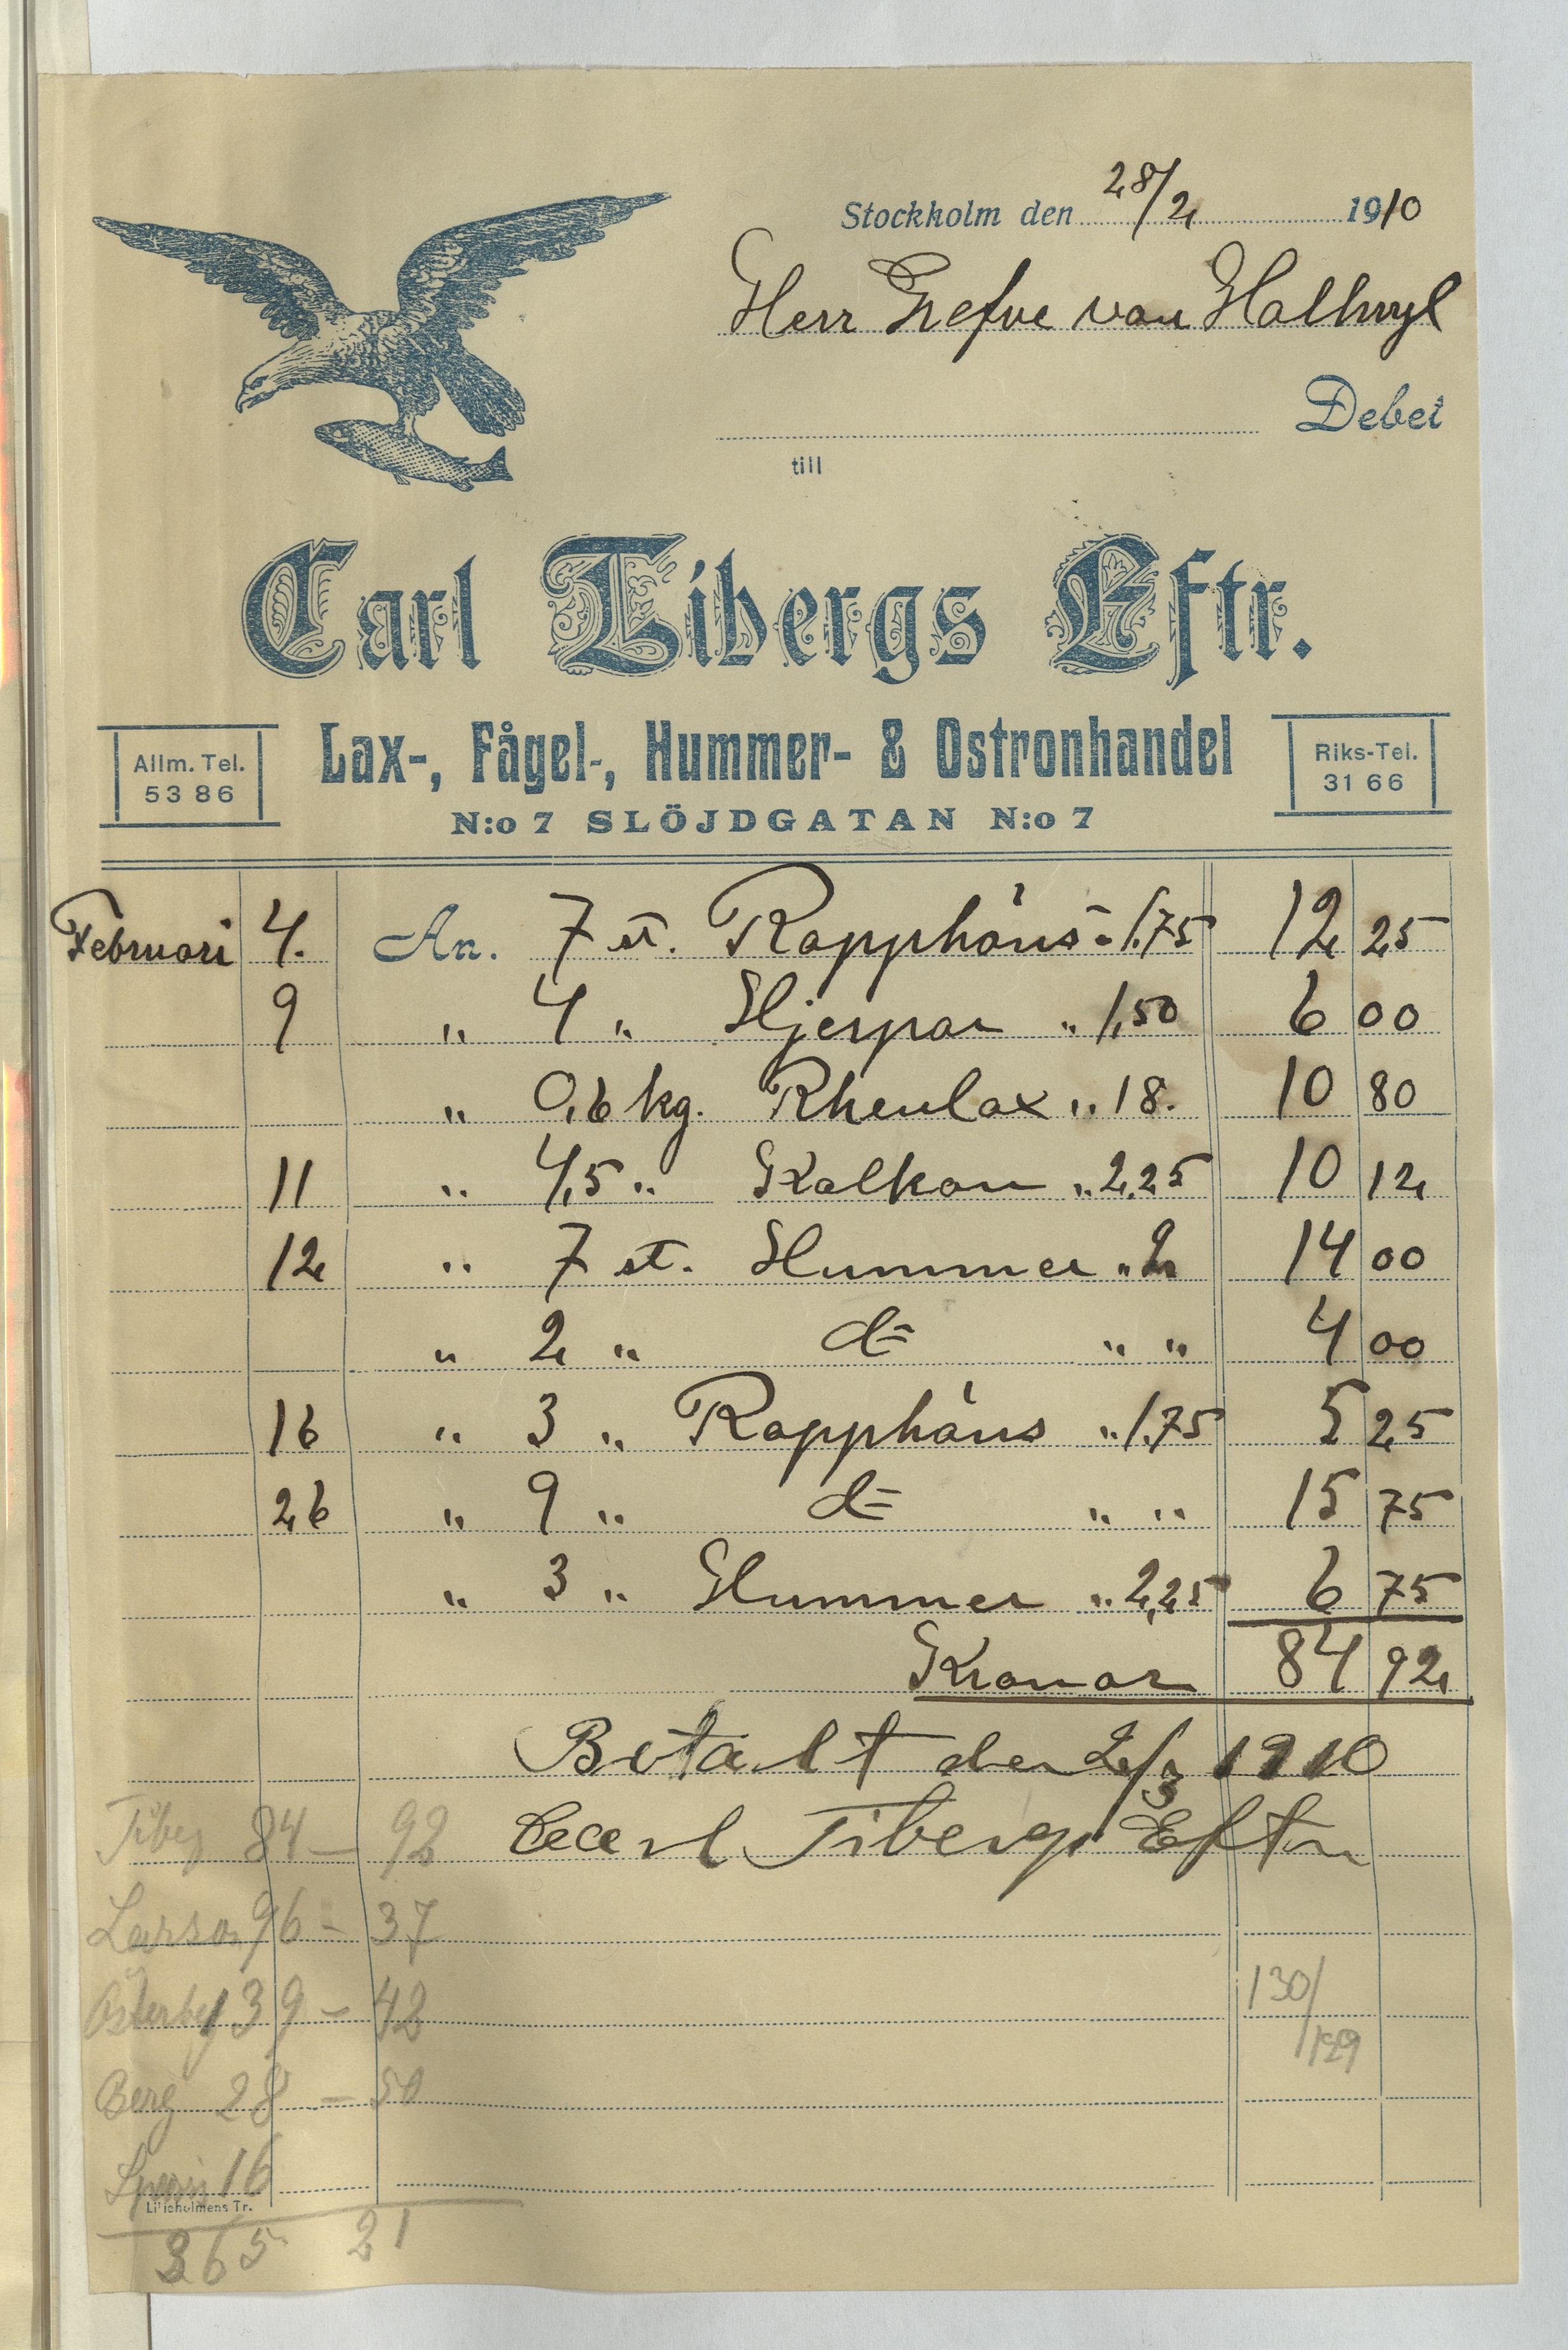 Stockholm den 28/2 1910
Herr Grefve von Hallwyl
Debet
till
Carl Tibergs Eftr.
Lax-, Fågel-, Hummer- & Ostronhandel
Allm. Tel.
53 86
Riks-Tel.
31 66
N:o 7 SLÖJDGATAN N:o 7
Februari 4. An. 7 st. Rapphöns à 1.75 12 25
9 " 4 " Hjerpar " 1,50 6 00
" 0,6 kg. Rhenlax " 18. 10 80
11 " 4,5 " Kalkon " 2,25 10 12
12 " 7 st. Hummer " 2 14 00
" 2 " d= " " 4 00
16 " 3 " Rapphöns " 1.75 5 25
26 " 9 " d= " " 15 75
" 3 " Hummer " 2,25 6 75
Kronor 84 92
Betalt den 2/3 1910
Carl Tibergs Eftr
Tiberg 84 – 92
Larson 96 – 37
Österberg 139 – 42
130/129
Berg 28 – 50
16
Liljeholmens Tr.
365 21